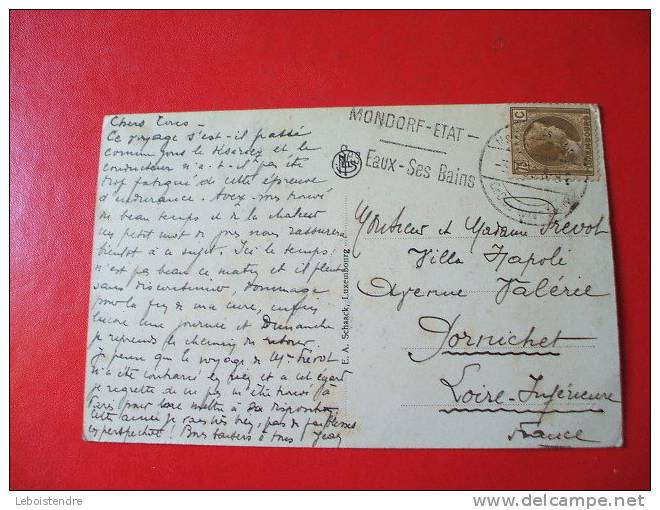 Chers Tous –
Ce voyage s'est-il passé
comme vous le désiriez et le
conducteur n'a-t-il pas été
trop fatigué de cette épreuve
d'endurance. Avez-vous trouvé
du beau temps et de la chaleur
un petit mot de vous nous rassurera
bientôt à ce sujet. Ici le temps
n'est pas beau ce matin et il pleut
sans discontinuer, dommage
pour la fin de ma cure, enfin
encore une journée et Dimanche
je reprends le chemin du retour.
Je pense que le voyage de Mr Prévot
n'a été contrarié en rien et à cet égard
je regrette de ne pas m'être trouvé à
Paris pour me mettre à sa disposition
cette année je vais très bien, pas de
en perspective! Bons baisers à tous
MONDORF-ETAT-
Eaux-Ses Bains
75 C
LUXEMBOURG
E. A. Schaack, Luxembourg
Monsieur et Madame Prevot
Villa Napoli
Avenue Valérie
Pornichet
Loire-Inférieure
France
Leboistendre
www.delcampe.net